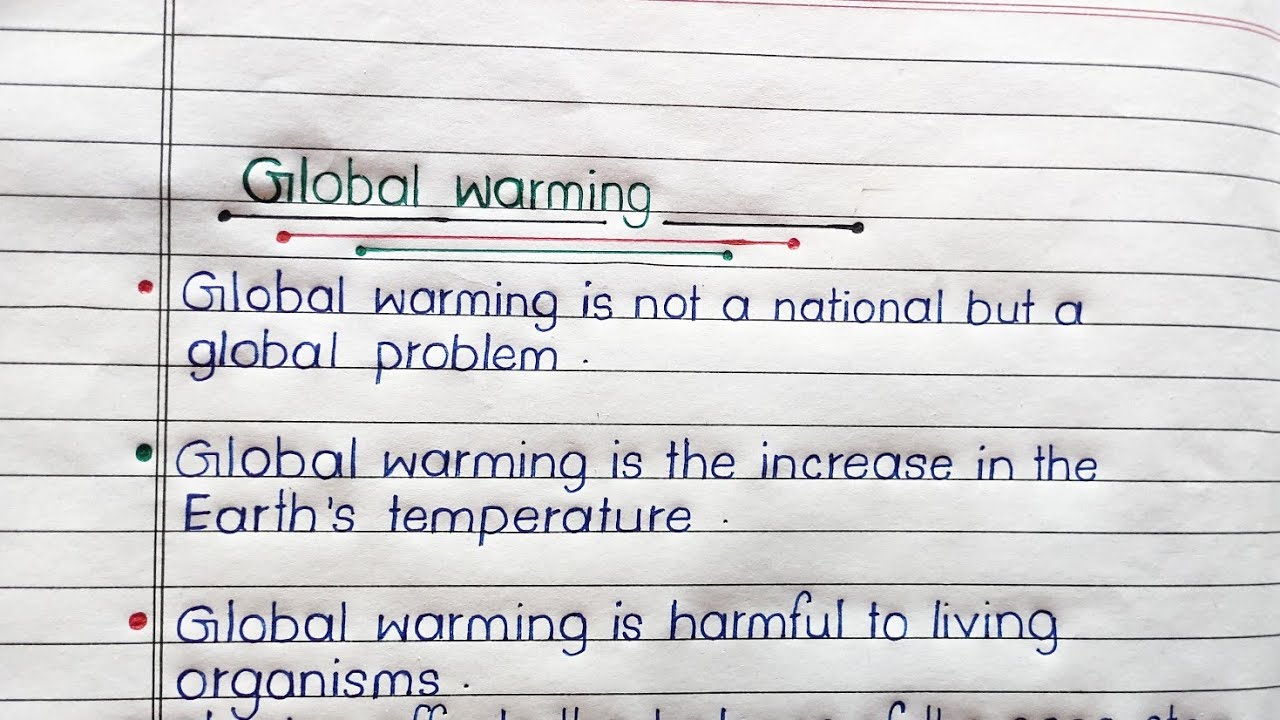 Global warming
Global warming is not a national but a
global problem .
Global warming is the increase in the
Earth's temperature .
Global warming is harmful to living
organisms .